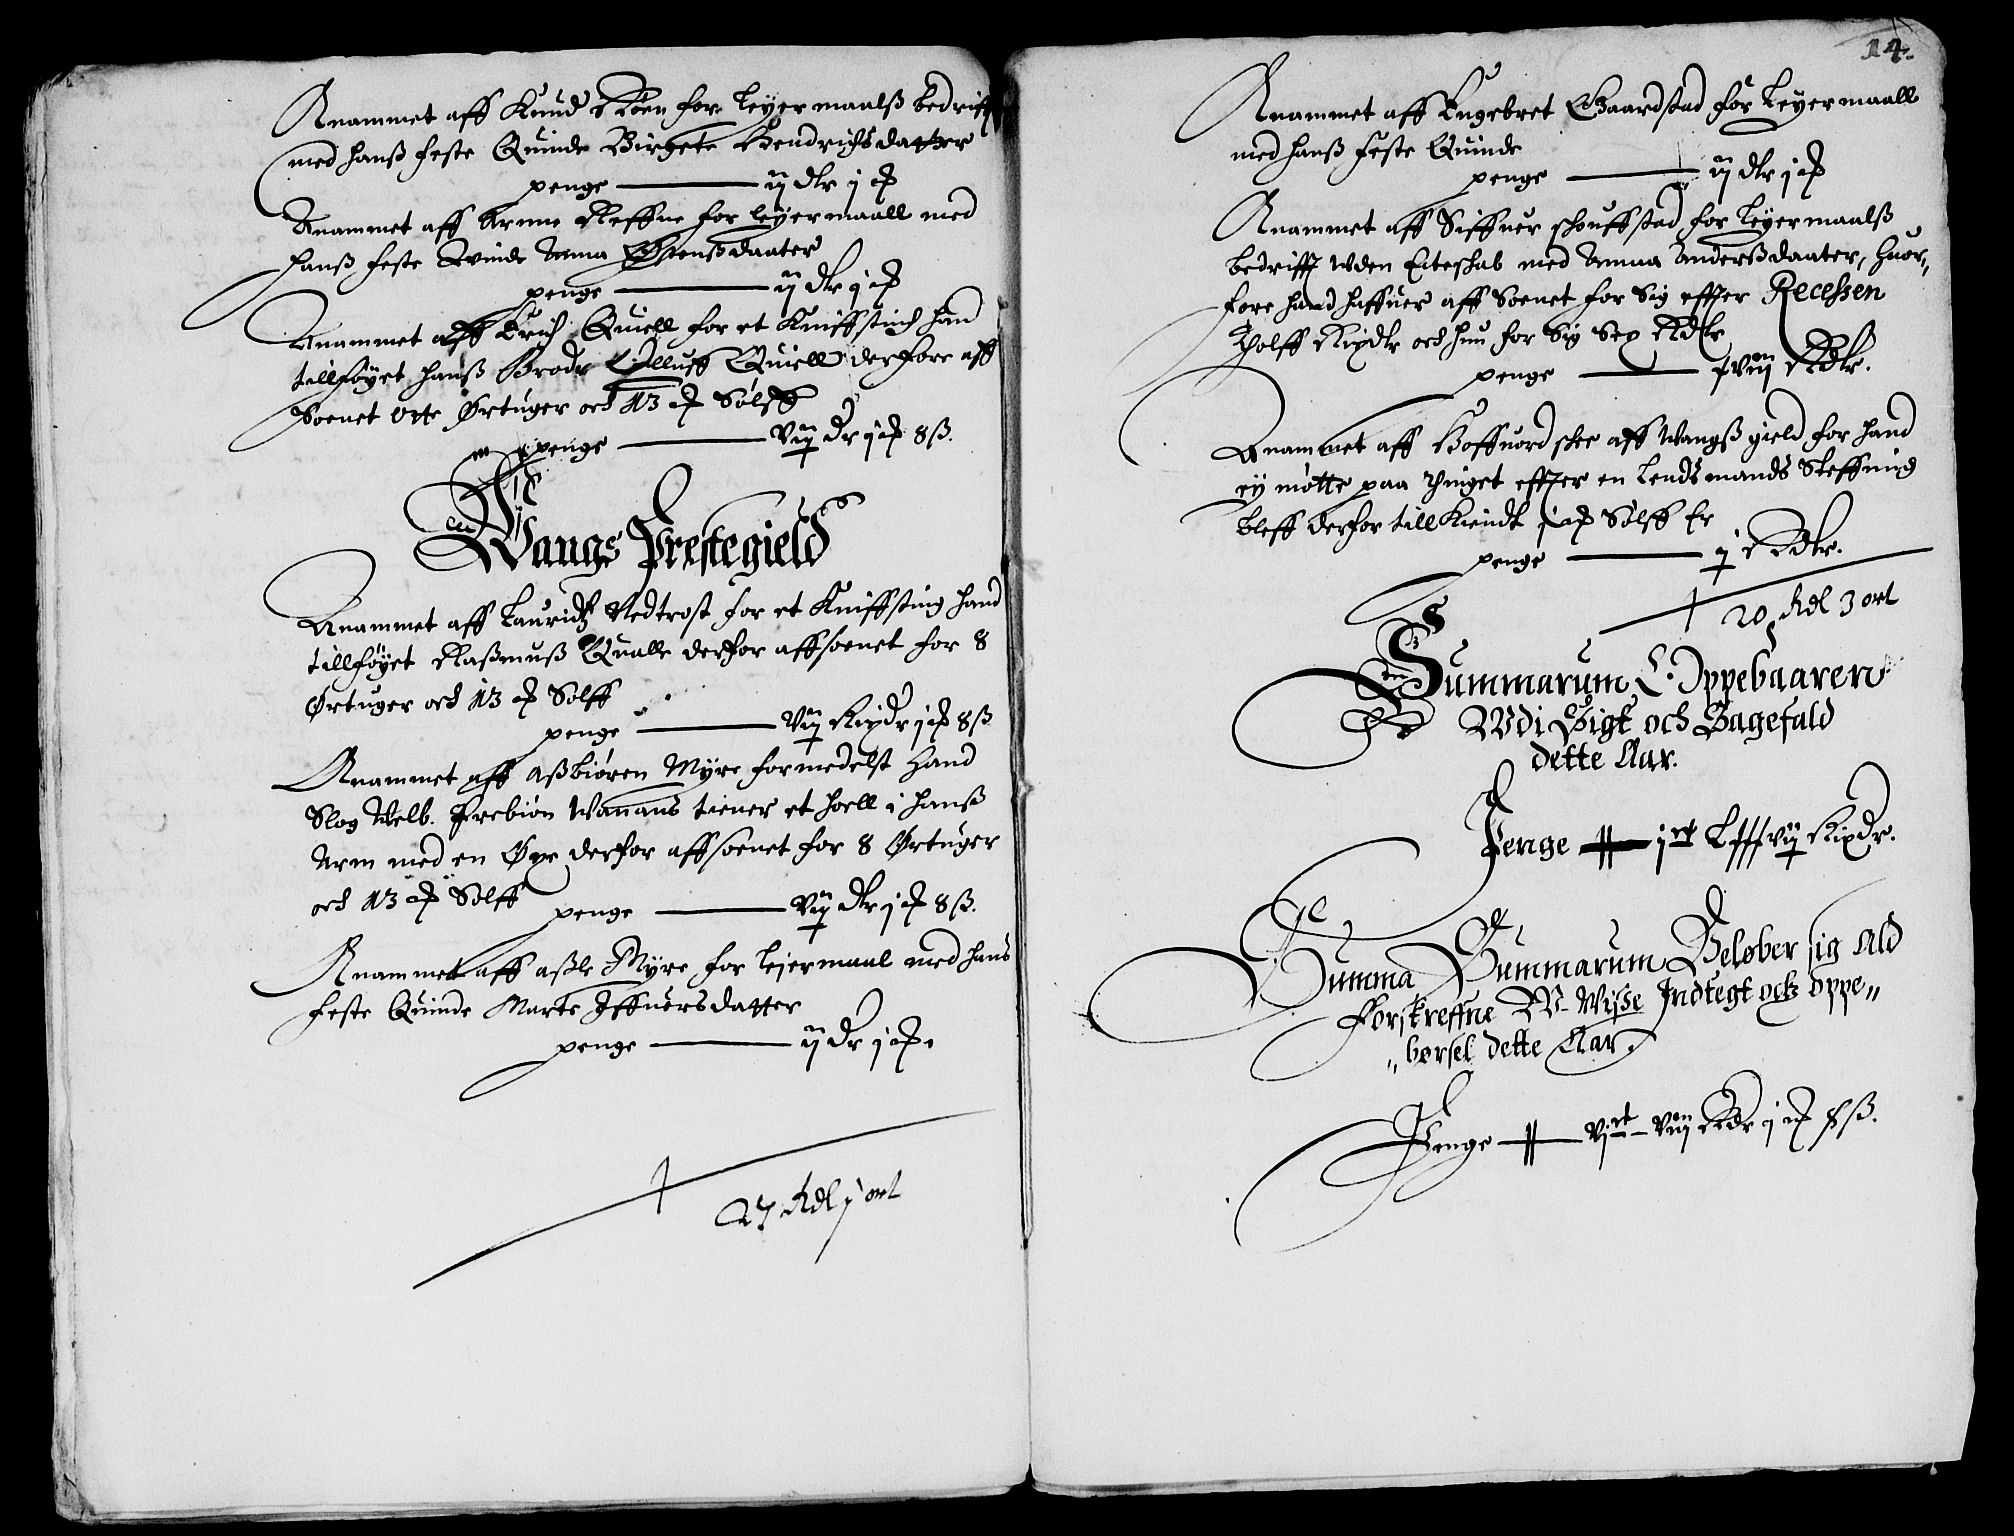 Anammet aff Knud Roen for leÿermaalß bedrifft
med hanß feste Quinde Birgete Hendrichsdatter
penge ij dlr j ort
Anammet aff Arnne Reffne for leÿermaall med
hanß feste Qvinde Anna Ostenßdaater
penge ij dlr j ort
Anammet aff Erich Quiell for et Kniffstich hand
tillføÿet hanß Broder Olluff Quiell derfore aff
Soenet otte Ørtuger och 13 Sølff
penge vij dr j ort 8 ß.
Wangs Prestegield
Anammet aff Lauridtz Nedtrost for et Kniffsting hand
tillføÿet Raßmuß Qualle derfor affsoenet for 8
Ørtuger och 13 Sølff
penge vij Rixdr j ort 8 ß
Anammet aff Aßbiøren Mÿre formedelst hand
Slog Welb. Prebion Wanans tiener et hoell i hanß
Arm med en Øxe derfor affsoenet for 8 Ørtuger
och 13 Sølff
penge vij dlr j ort 8 ß.
Anammet aff Aßle Mÿre for leiermaal med hans
feste Quinde Marte Iffuersdatter
penge ij dr j ort.
27 Rdl j ort
14.
Anammet aff Engebret Gaardstad for leÿermaall
med hanß feste Quinde
penge ij dlr j ort
Anammet aff Siffuer schouffstad for leÿermaalß
bedrifft uden Echteskab med Anna Anderßdaater, huor„
fore hand haffuer aff Soenet for Sig effter Recessen
Tholff Rixdlr och hun for Sig Sex Rdlr
penge xviij Rdlr.
Anammet aff Hoffuordschee aff Wangß gield for hand
eÿ møtte paa thinget effter en Lendsmands Steffning
bleff derfor till Kiendt j Sølff Er
penge j Rdlr.
20 Rdl 3 ort
Summarum Oppebaaren
Wdi Sigt och Sagefald
dette Aar.
Penge j ct Lxxxvij Rixdr.
Summa Summarum Beløber sig Ald
Forskreffne W-Wisse Indtegt och oppe„
„børsel dette Aar.
Penge vj ct viij Rdr j ort 8 ß.